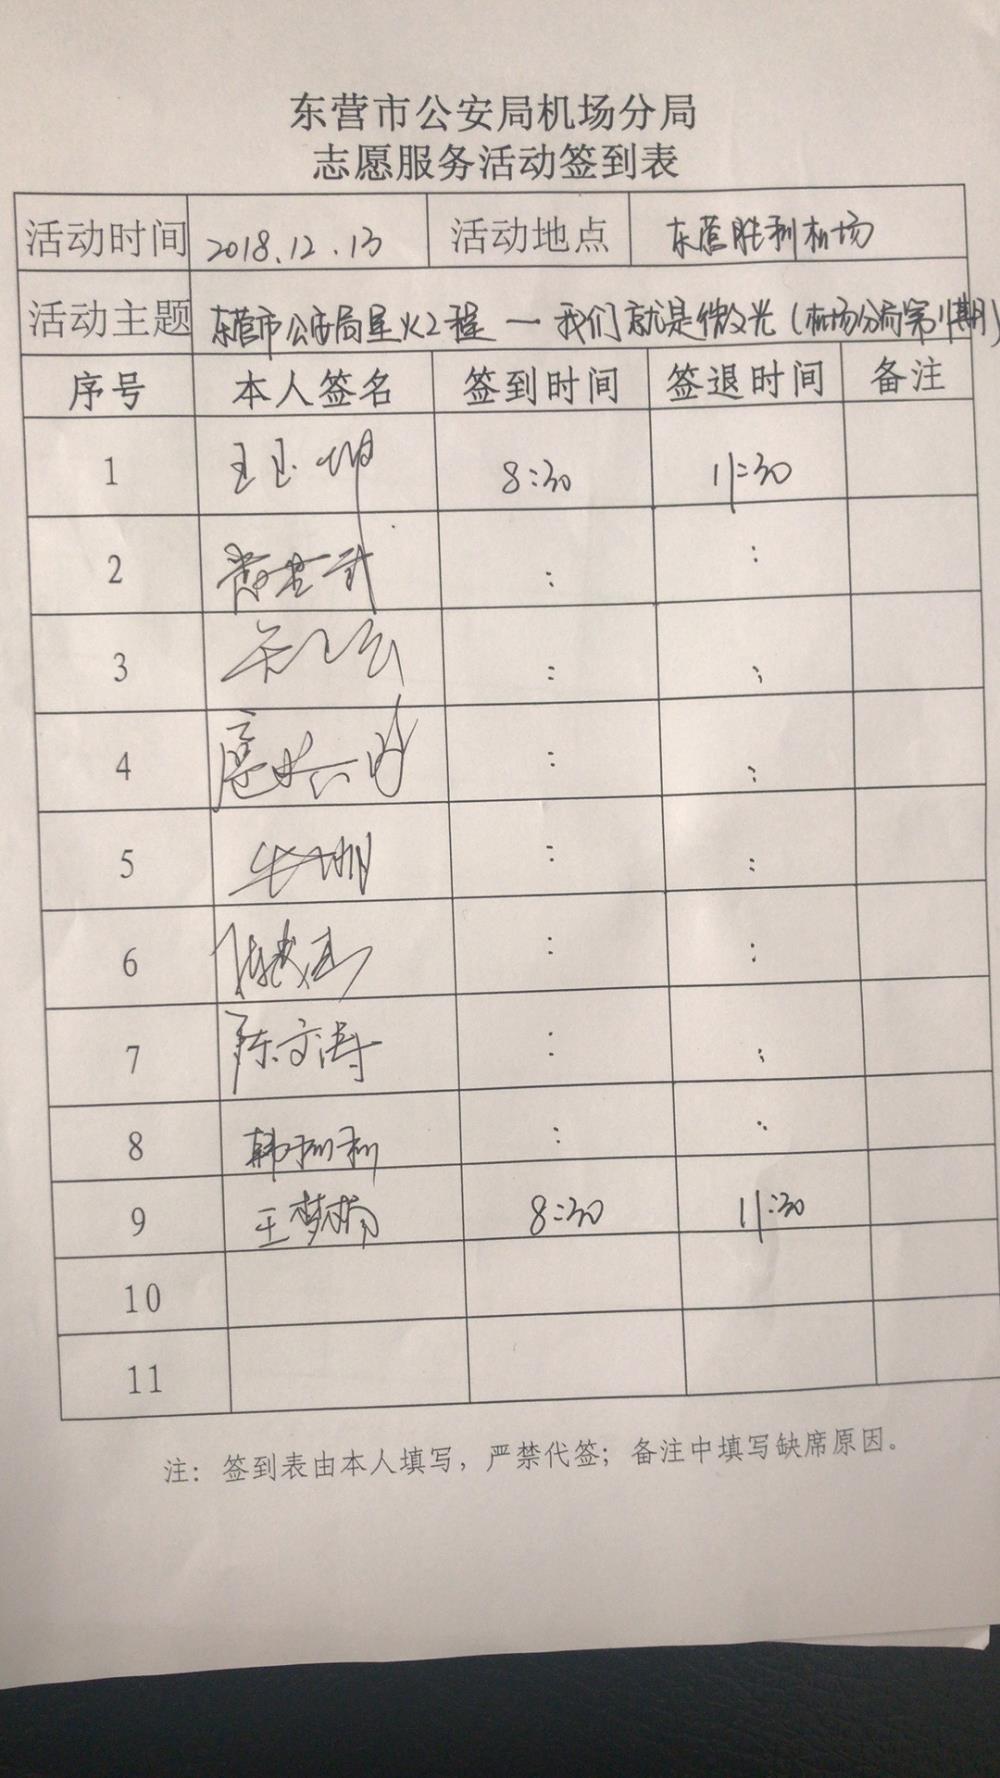 东营市公安局机场分局
志愿服务活动签到表
活动时间 2018.12.13 活动地点 东营胜利机场
活动主题 东营市公安局星火工程 — 我们就是微光（机场分局第 期）
序号 本人签名 签到时间 签退时间 备注
1 王玉坤 8:30 11:30
2 : :
3 : :
4 : :
5 : :
6 : :
7 陈文涛 : :
8 韩利利 : :
9 王梦楠 8:30 11:30
10
11
注：签到表由本人填写，严禁代签；备注中填写缺席原因。